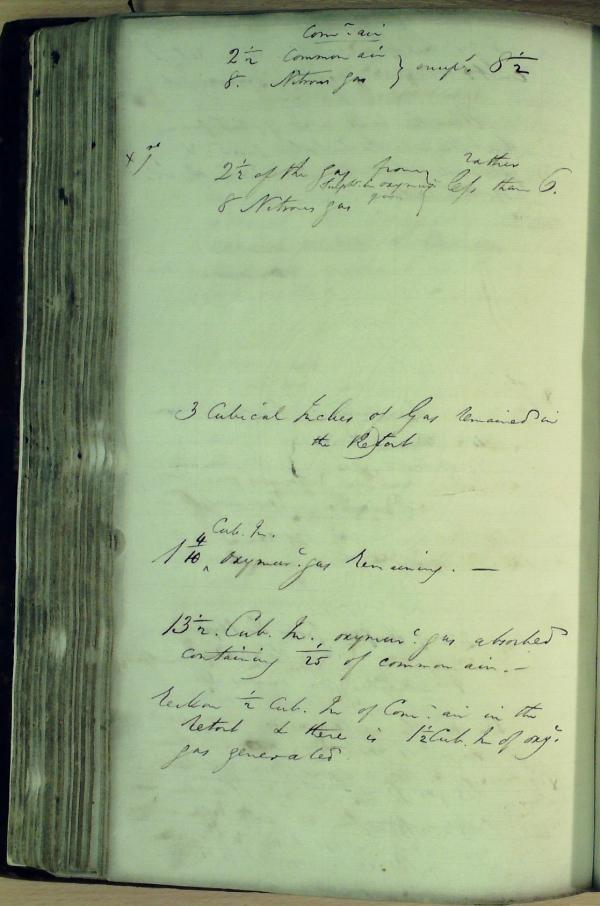 Comn. air
2 1/2 Common air } occupd. 8 1/2
8. Nitrous gas
x 1st
2 1/2 of the gas from } rather
Sulpt. & oxymur. less than 6.
8 Nitrous gas
3 Cubical Inches of Gas remained in
the Retort
Cub. In.
1 4/10 ^ oxymurc. gas Remaining. —
13 1/2. Cub. In. oxymurc. gas absorbed
containing 1/25 of common air. —
Reckon 1/2 Cub. In of Comn. air in the
retort & there is 1 1/2 Cub. In of oxy.
gas generated